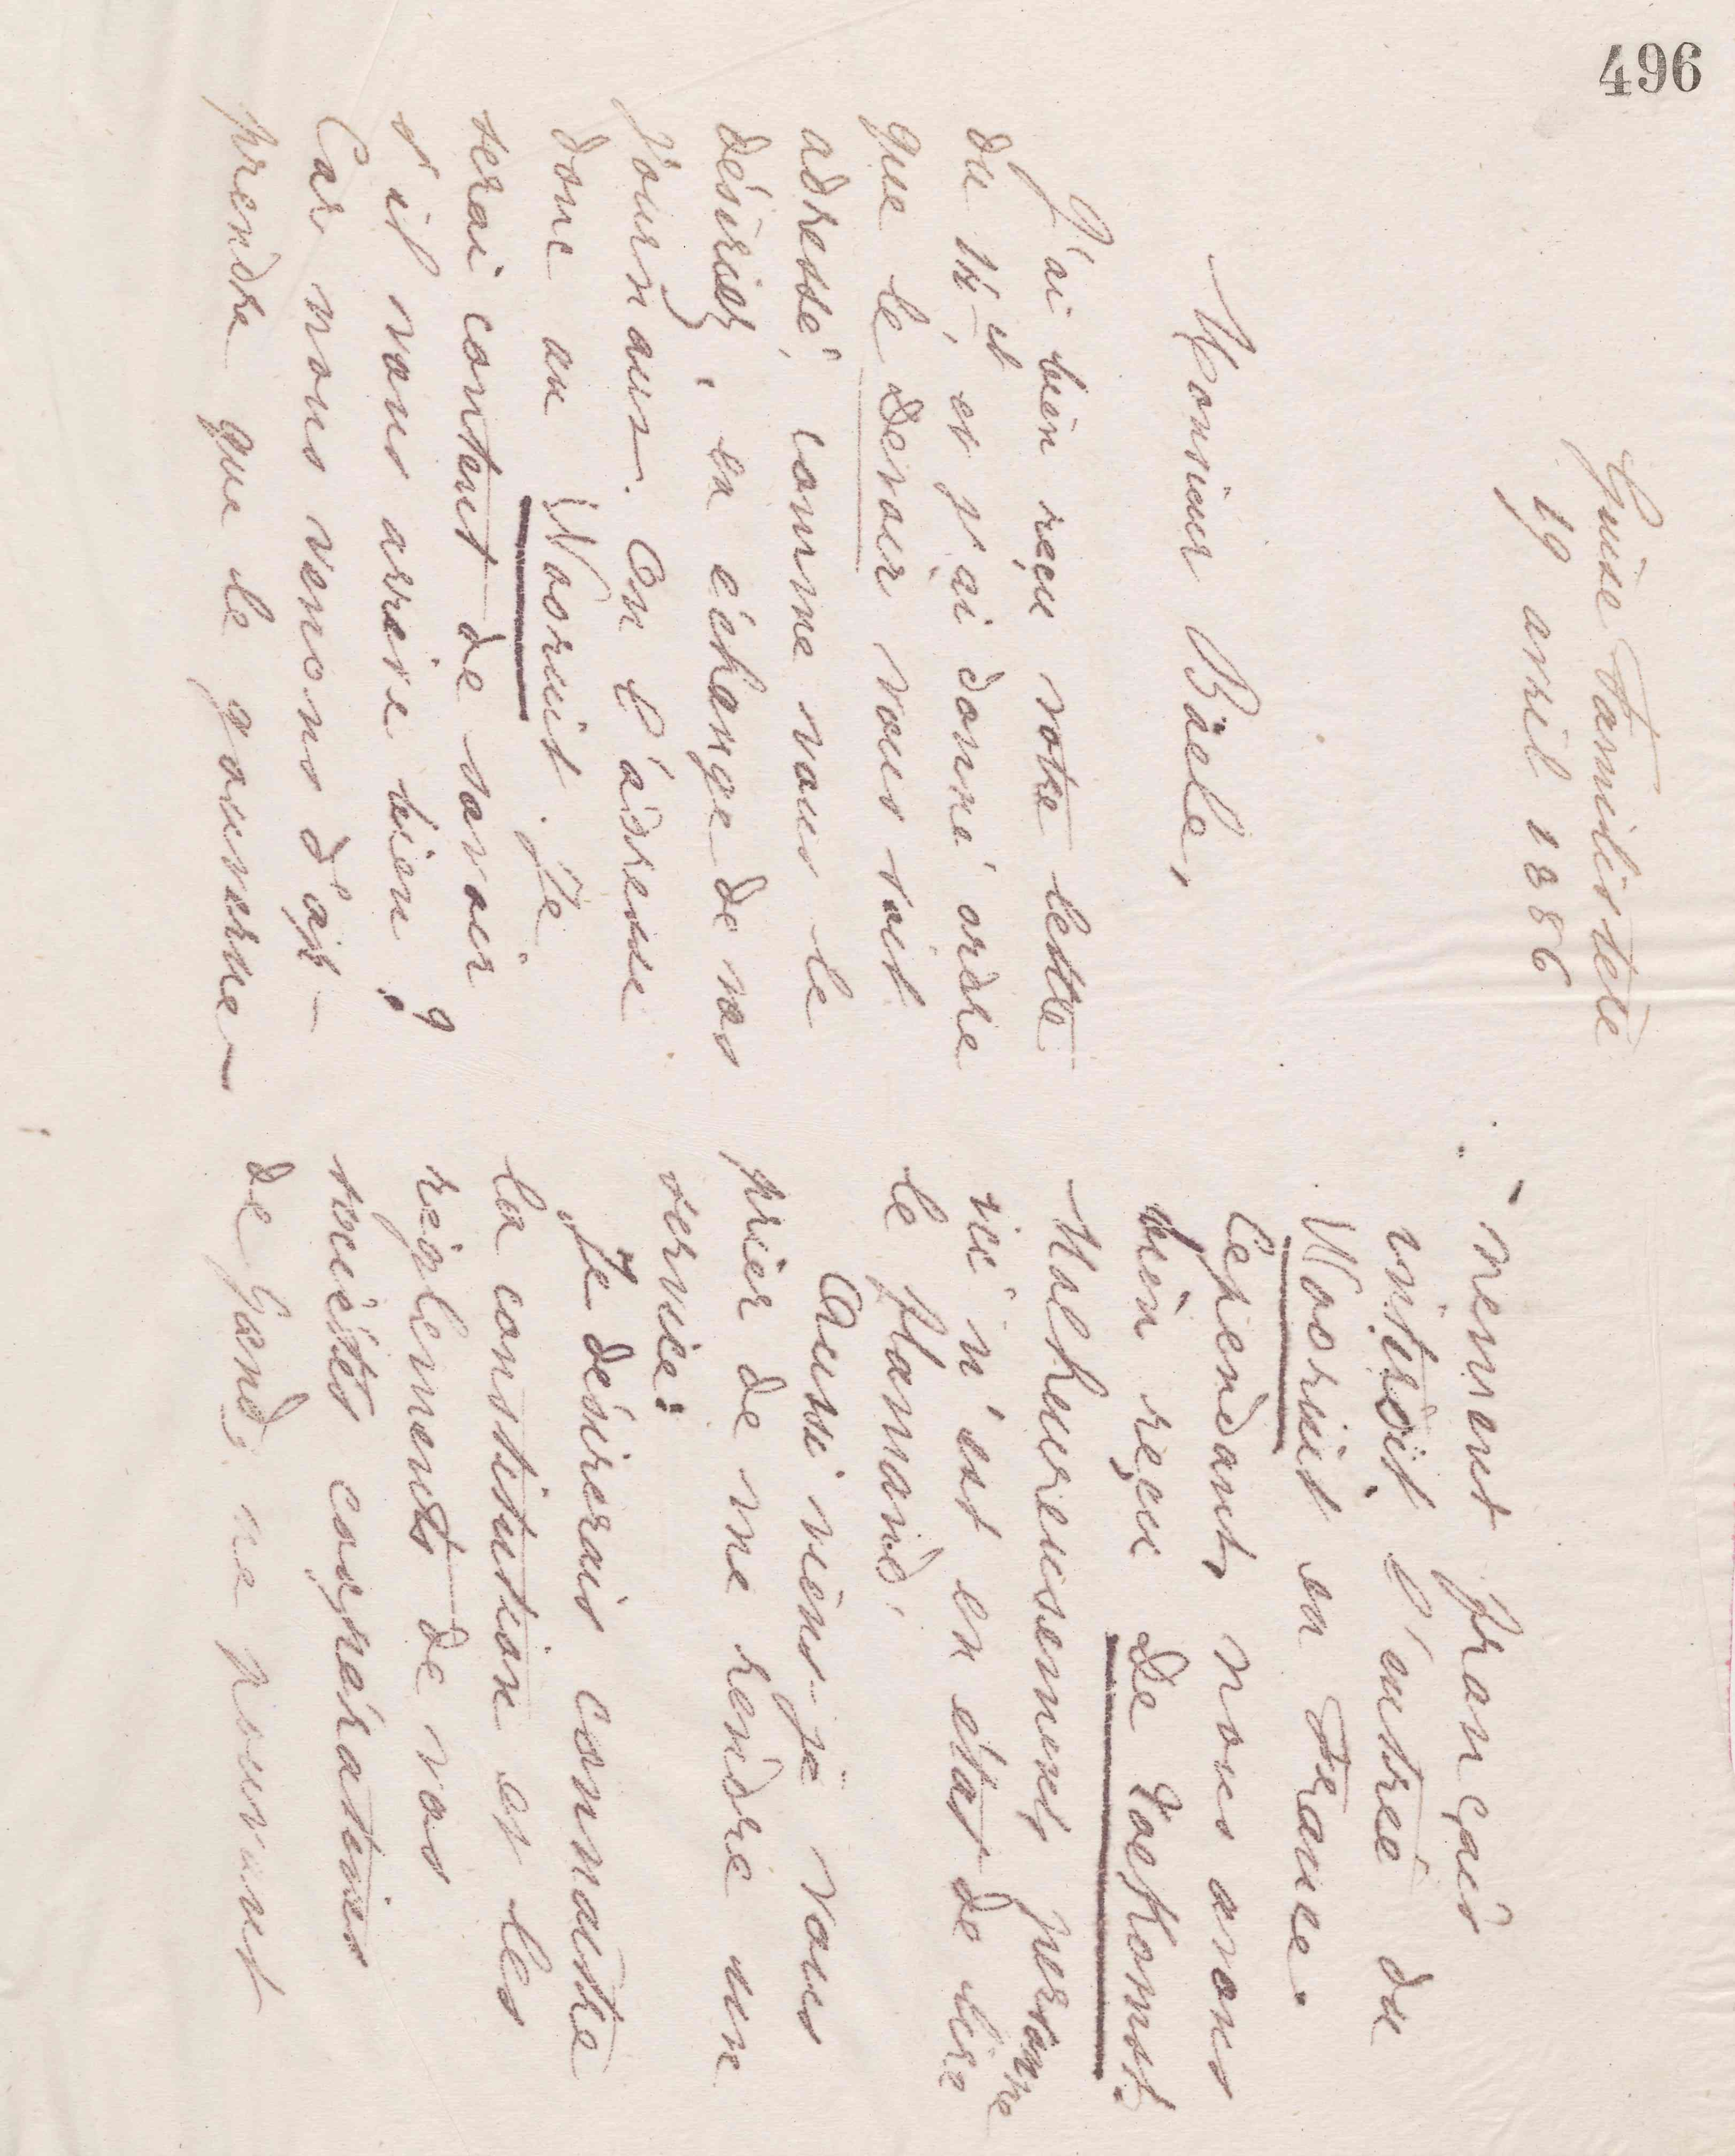 496
Guise Familistère
19 avril 1886
Monsieur Bäele,
J'ai bien reçu votre lettre
du 14 ct et j'ai donné ordre
que le Devoir vous soit
adressé, comme vous le
désiriez, en échange de vos
journaux. On l'adresse
donc au Vooruit. Je
serai content de savoir
s'il vous arrive bien ?
Car nous venons d'ap-
prendre que le gouverne-
ment français
interdit l'entrée du
Vooruit en France.
Cependant, nous avons
bien reçu De Toekomst.
Malheureusement, personne
ici n'est en état de lire
le flamand.
Aussi viens-je vous
prier de me rendre un
service :
Je désirerais connaître
la constitution et les
règlements de vos
sociétés coopératives
de Gand, ne pouvant